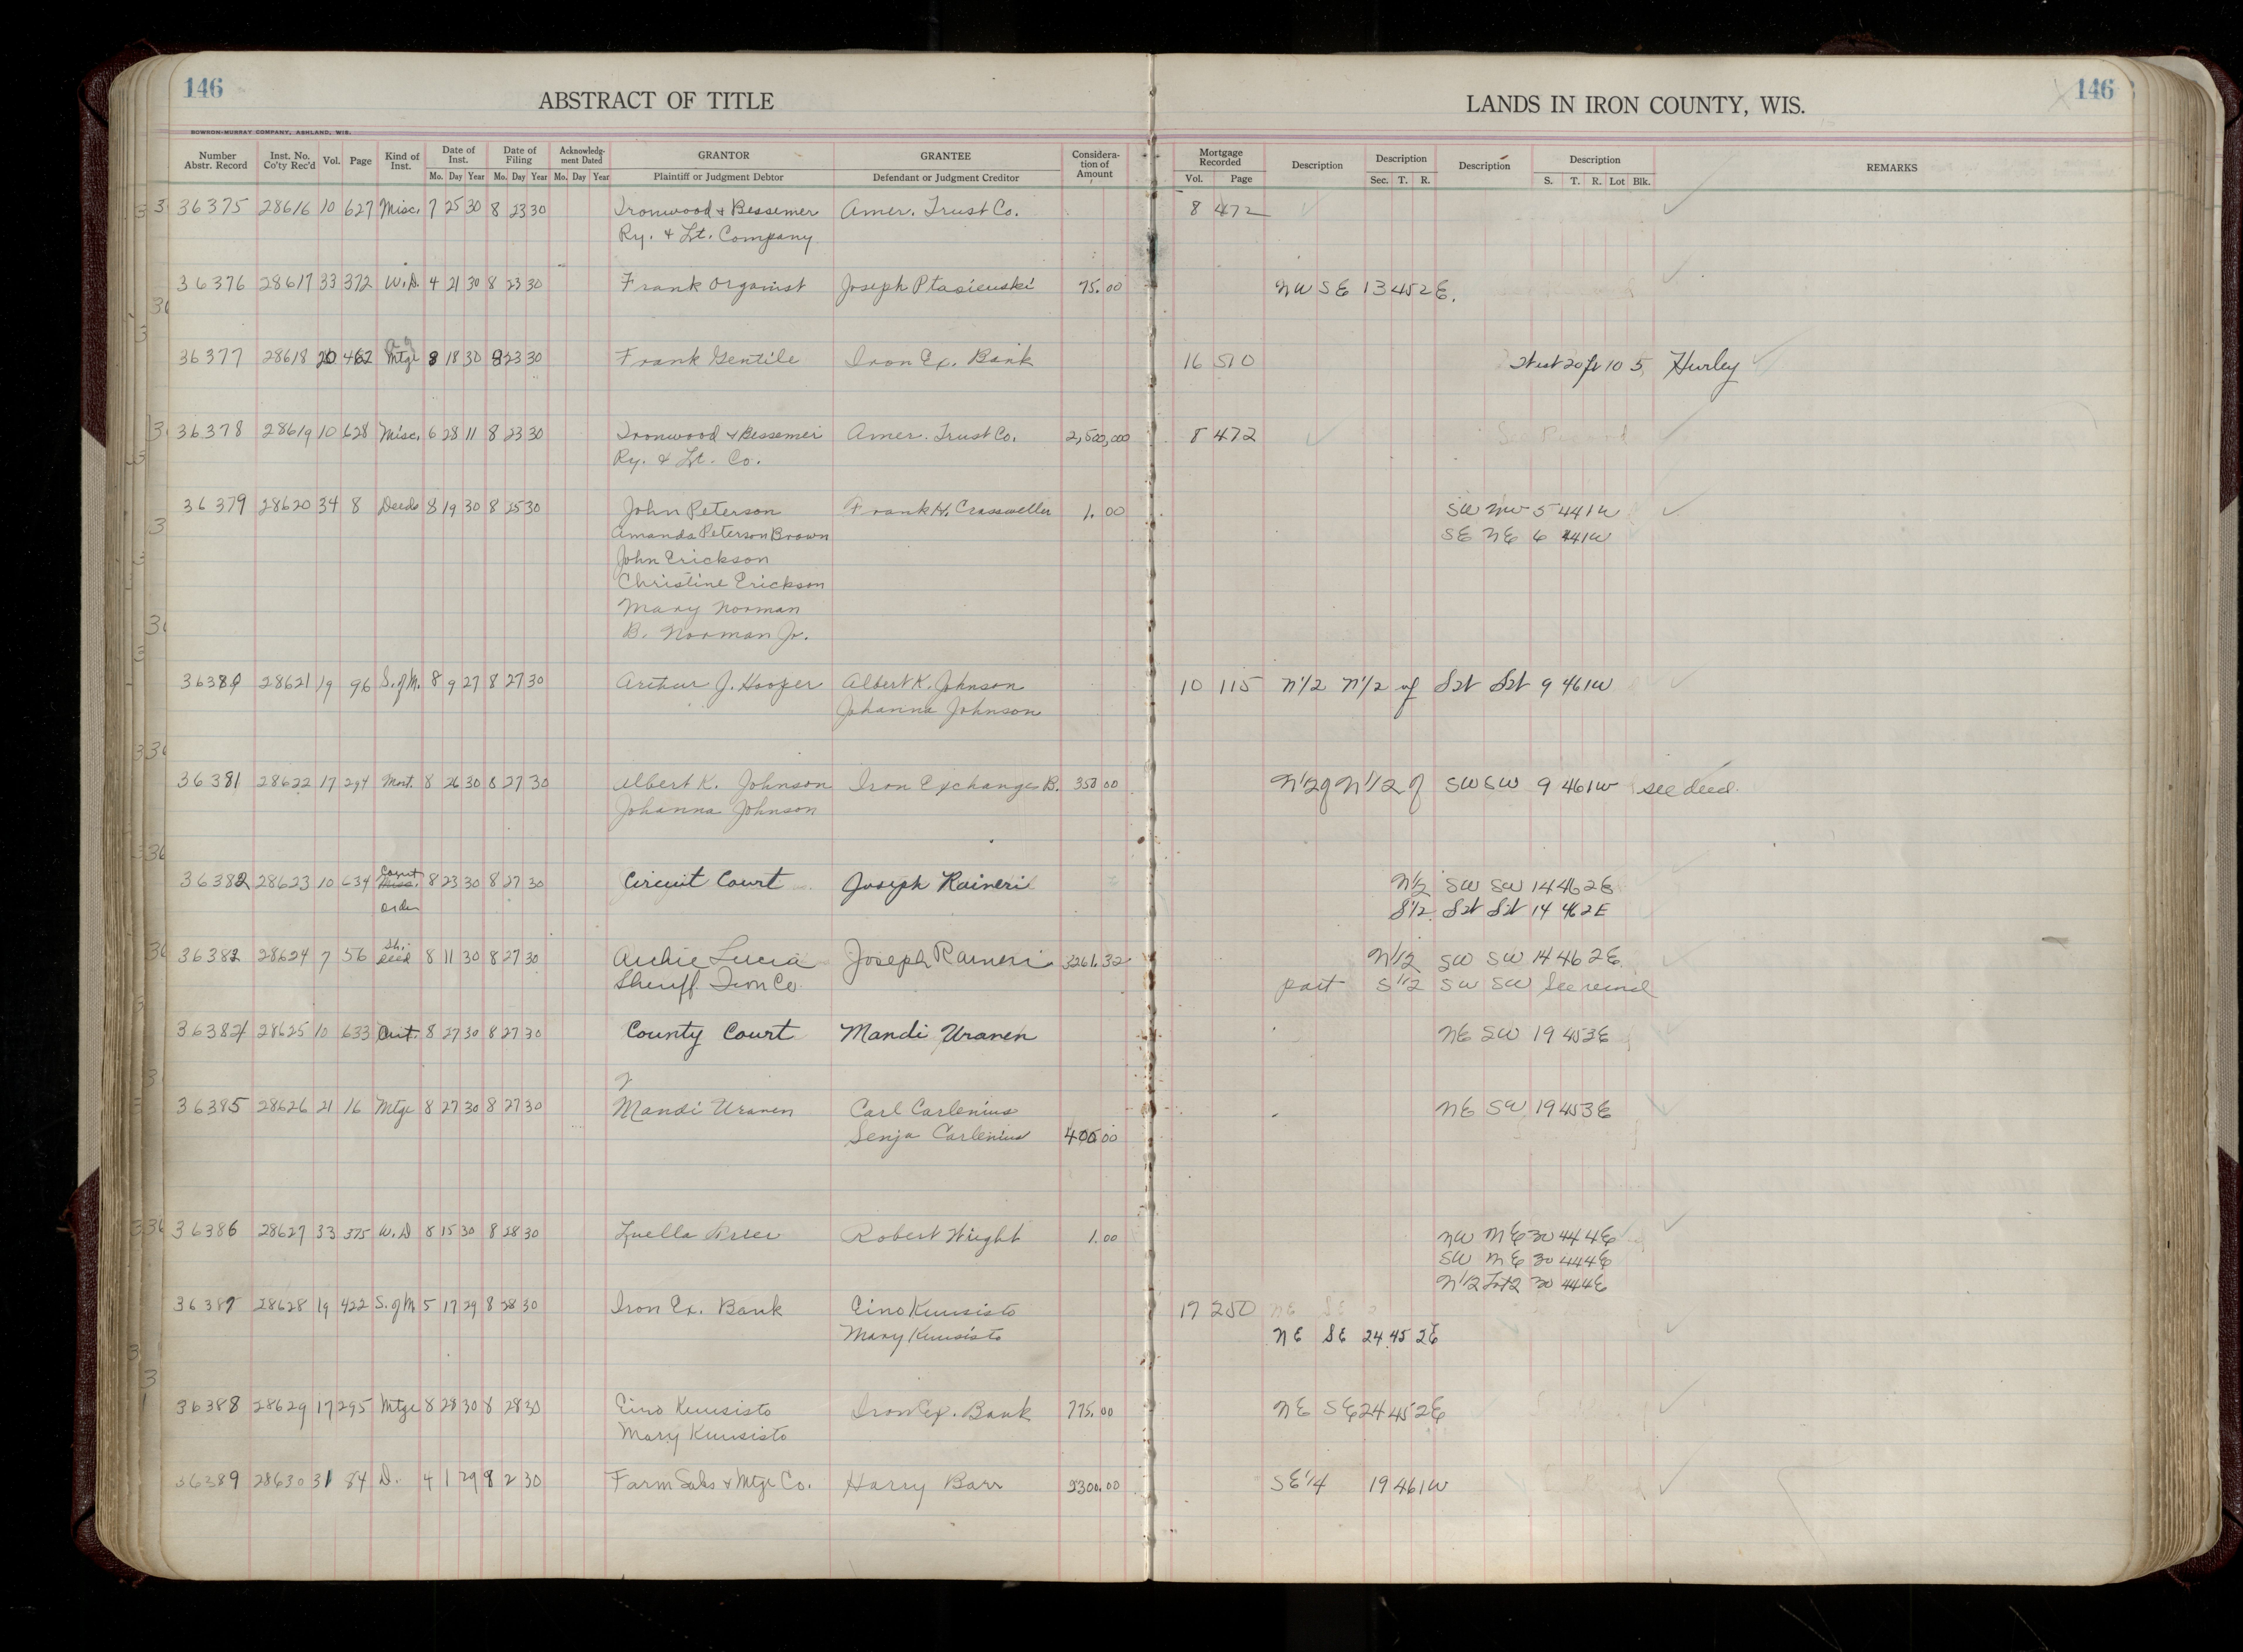 146
ABSTRACT OF TITLE
LANDS IN IRON COUNTY, WIS.
146
BOWRON-MURRAY COMPANY, ASHLAND, WIS.
Number Abstr. Record Inst. No. Co'ty Rec'd Vol. Page Kind of Inst. Date of Inst. Mo. Day Year Date of Filing Mo. Day Year Acknowledg-ment Dated Mo. Day Year GRANTOR Plaintiff or Judgment Debtor GRANTEE Defendant or Judgment Creditor Considera-tion of Amount Mortgage Recorded Vol. Page Description Description Sec. T. R. Description Description S. T. R. Lot Blk. REMARKS
36375 28616 10 627 Misc. 7 25 30 8 23 30 Ironwood & Bessemer Amer. Trust Co. 8 472
Ry. & Lt. Company
36376 28617 33 372 W.D. 4 21 30 8 23 30 Frank Organist Joseph Ptasienski 75.00 NW SE 13 45 2E.
36377 28618 20 462 Mtge 8 18 30 8 23 30 Frank Gentile Iron Ex. Bank 16 510 West 20 ft 10 5 Hurley
36378 28619 10 628 Misc. 6 28 11 8 23 30 Ironwood & Bessemer Amer. Trust Co. 2,500,000 8 472 See Record
Ry. & Lt. Co.
36379 28620 34 8 Deed 8 19 30 8 25 30 John Peterson Frank H. Crassweller 1.00 SW NW 5 44 1W
Amanda Peterson Brown SE NE 6 44 1W
John Erickson
Christine Erickson
Mary Norman
B. Norman Jr.
36380 28621 19 96 S. of M. 8 9 27 8 27 30 Arthur J. Hooper Albert K. Johnson 10 115 N1/2 N1/2 of SW SW 9 46 1W
Johanna Johnson
36381 28622 17 294 Mort. 8 26 30 8 27 30 Albert K. Johnson Iron Exchange B. 350 00 N1/2 of N1/2 of SW SW 9 46 1W see deed.
Johanna Johnson
36382 28623 10 634 Court order 8 23 30 8 27 30 Circuit Court Joseph Raineri N1/2 SW SW 14 46 2E
S1/2 SW SW 14 46 2E
36383 28624 7 56 Sh. Deed 8 11 30 8 27 30 Archie Lucia Joseph Raineri 3261.32 N1/2 SW SW 14 46 2E
Sheriff Iron Co. part S1/2 SW SW See record
36384 28625 10 633 Cert. 8 27 30 8 27 30 County Court Mandi Uranen NE SW 19 45 3E
36385 28626 21 16 Mtge 8 27 30 8 27 30 Mandi Uranen Carl Carlenius NE SW 19 45 3E
Senja Carlenius 400.00
36386 28627 33 375 W.D 8 15 30 8 28 30 Luella Robert Wright 1.00 NW NE 30 44 4E
SW NE 30 44 4E
N1/2 Lot 2 30 44 4E
36387 28628 19 422 S. of M 5 17 29 8 28 30 Iron Ex. Bank Eino Kuusisto 17 250
Mary Kuusisto NE SE 24 45 2E
36388 28629 17 295 Mtge 8 28 30 8 28 30 Eino Kuusisto Iron Ex. Bank 775.00 NE SE 24 45 2E
Mary Kuusisto
36389 28630 31 84 D. 4 1 29 8 2 30 Farm Sales & Mtge Co. Harry Barr 2300.00 SE1/4 19 46 1W